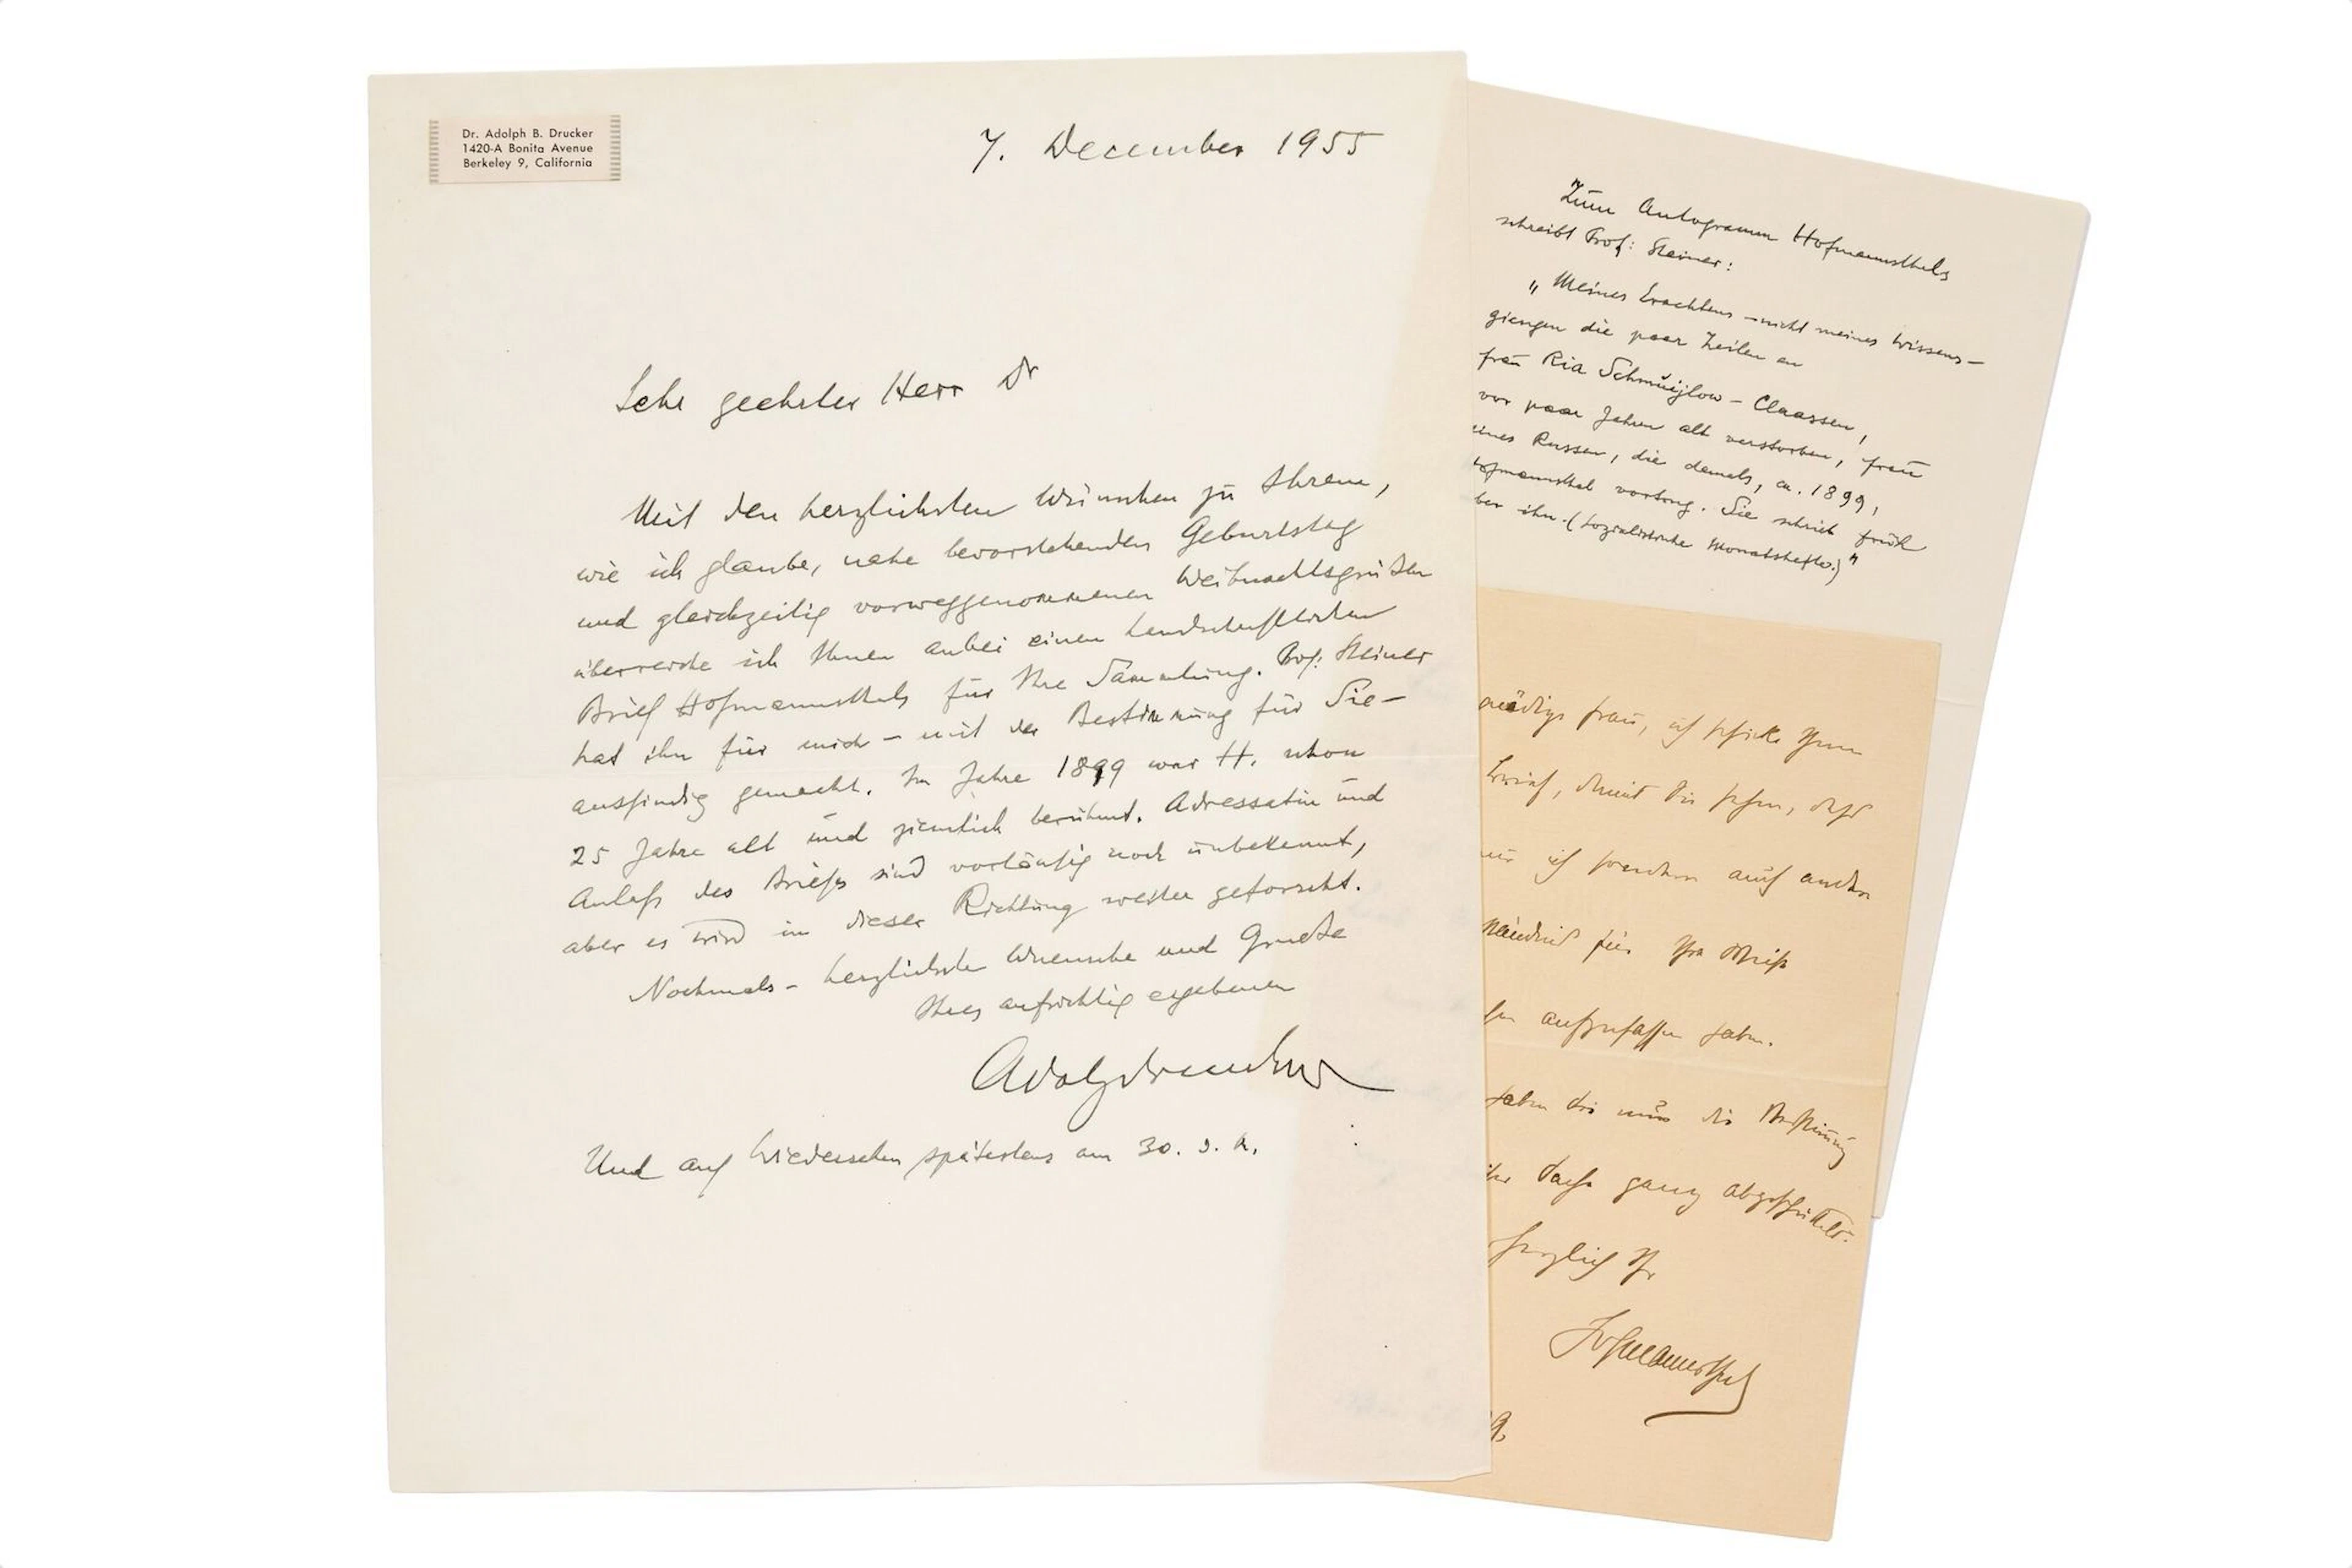 Dr. Adolph B. Drucker
1420-A Bonita Avenue
Berkeley 9, California
7. December 1955
Sehr geehrter Herr Dr
Mit den herzlichsten Wünschen zu Ihrem,
wie ich glaube, nahe bevorstehenden Geburtstag
und gleichzeitig vorweggenommenen Weihnachtsgrüßen
überreiche ich Ihnen anbei einen handschriftlichen
Brief Hofmannsthals für Ihre Sammlung. Prof: Steiner
hat ihn für mich – mit der Bestimmung für Sie –
ausfindig gemacht. Im Jahre 1899 war H. schon
25 Jahre alt und ziemlich berühmt. Adressatin und
Anlaß des Briefes sind vorläufig noch unbekannt,
aber es wird in dieser Richtung weiter geforscht.
Nochmals – herzlichste Wuensche und Grueße
Ihres aufrichtig ergebenen
Adolf Drucker
Und auf Wiedersehen spätestens am 30. d. M.
Zum Autogramm Hofmannsthals
schreibt Prof: Steiner:
"Meines Erachtens – nicht meines Wissens –
giengen die paar Zeilen an
Frau Ria Schmujlow-Claassen,
vor paar Jahren alt verstorben, Frau
eines Russen, die damals, ca. 1899,
ofmannsthal vortrug. Sie schrieb früh
ber ihn. (Sozialistische Monatshefte.)"
nädige Frau, ich schicke Ihnen
damit Sie sehen, dass
ich sondern auch andere
ständnis für Ihr
aufzufassen haben.
haben Sie nun die Verstimmung
Sache ganz abgeschüttelt.
Herzlich Ihr
Hofmannsthal
9.